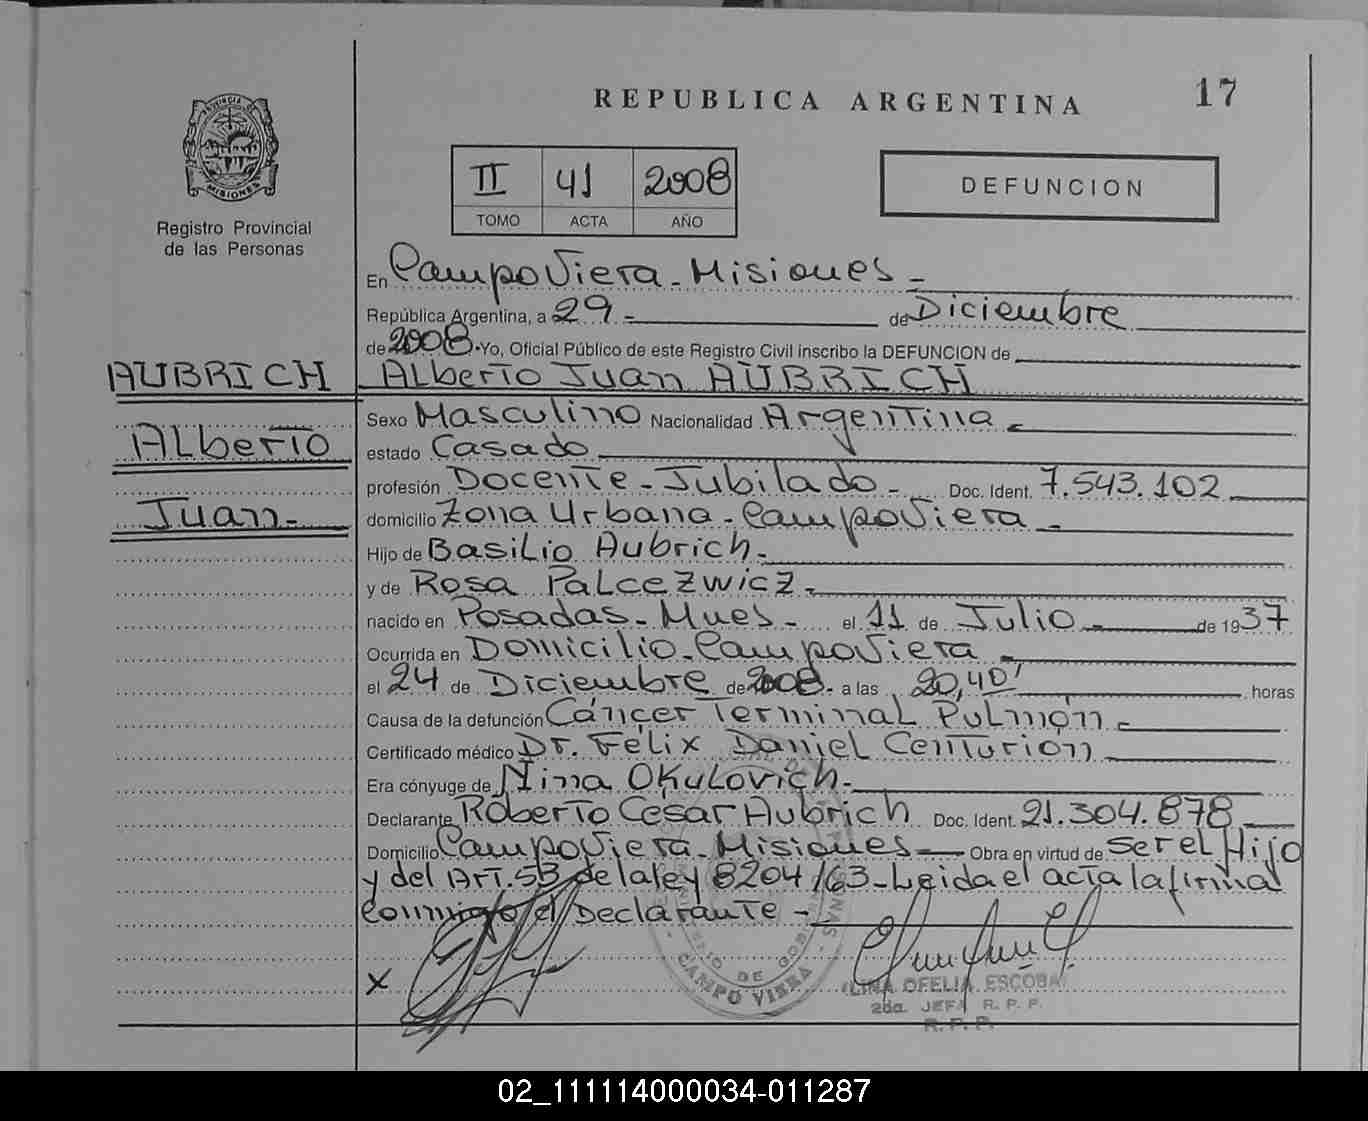 REPUBLICA ARGENTINA
17
PROVINCIA DE
MISIONES
Registro Provincial
de las Personas
II 41 2008
TOMO ACTA AÑO
DEFUNCION
En Campo Viera - Misiones -
República Argentina, a 29 - de Diciembre
de 2008 - Yo, Oficial Público de este Registro Civil inscribo la DEFUNCION de
AUBRICH
Alberto
Juan -
Alberto Juan AUBRICH
Sexo Masculino Nacionalidad Argentina -
estado Casado
profesión Docente - Jubilado - Doc. Ident. 7.543.102
domicilio Zona Urbana - Campo Viera -
Hijo de Basilio Aubrich -
y de Rosa Palcezwicz -
nacido en Posadas - Mnes - el 11 de Julio - de 1937
Ocurrida en Domicilio - Campo Viera -
el 24 de Diciembre de 2008 - a las 20,40' horas
Causa de la defunción Cáncer Terminal Pulmón -
Certificado médico Dr. Félix Daniel Centurión
Era cónyuge de Nina Okulovich -
Declarante Roberto Cesar Aubrich Doc. Ident. 21.304.878
Domicilio Campo Viera - Misiones - Obra en virtud de ser el Hijo
y del Art. 53 de la ley 8204/63 - Leida el acta la firma
conmigo el Declarante -
X
DE GOBI
CAMPO VIERA
OFELIA ESCOBA
2da. JEFA R. P. P.
R. P. P.
02_111114000034-011287